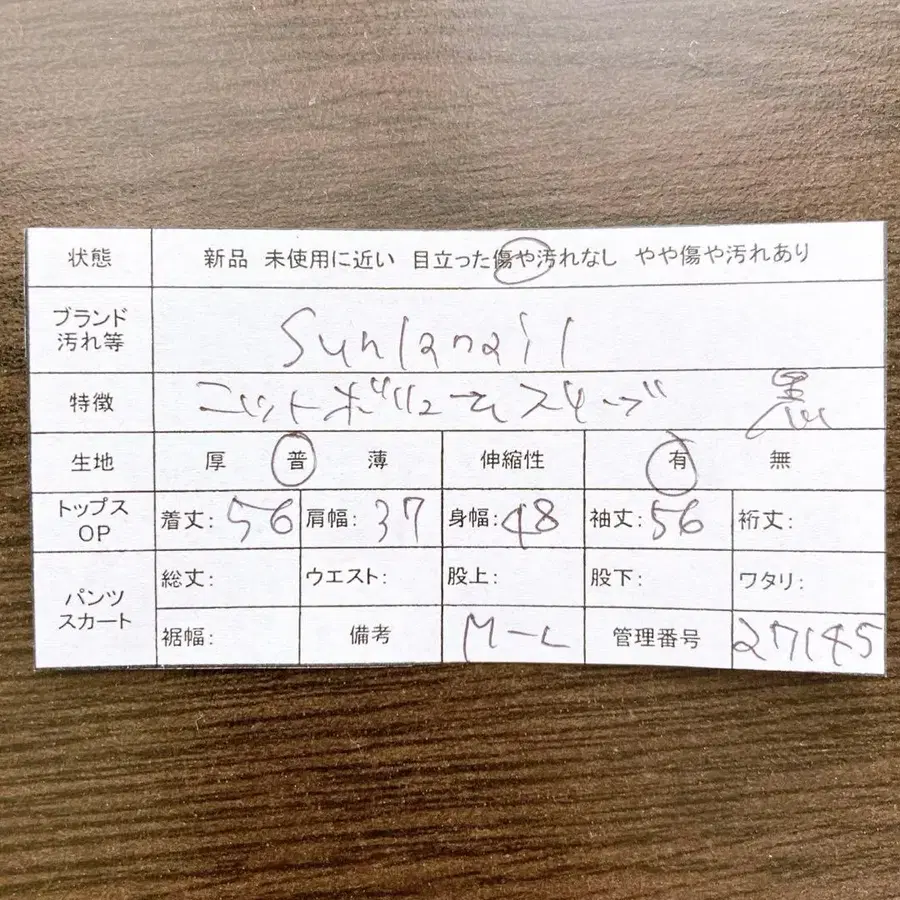 状態 新品 未使用に近い 目立った傷や汚れなし やや傷や汚れあり
ブランド
汚れ等 Sunlanail
特徴 ニットボリュームスリーブ 黒
生地 厚 普 薄 伸縮性 有 無
トップス
OP 着丈: 56 肩幅: 37 身幅: 48 袖丈: 56 裄丈:
パンツ
スカート 総丈: ウエスト: 股上: 股下: ワタリ:
裾幅: 備考 M-L 管理番号 27145